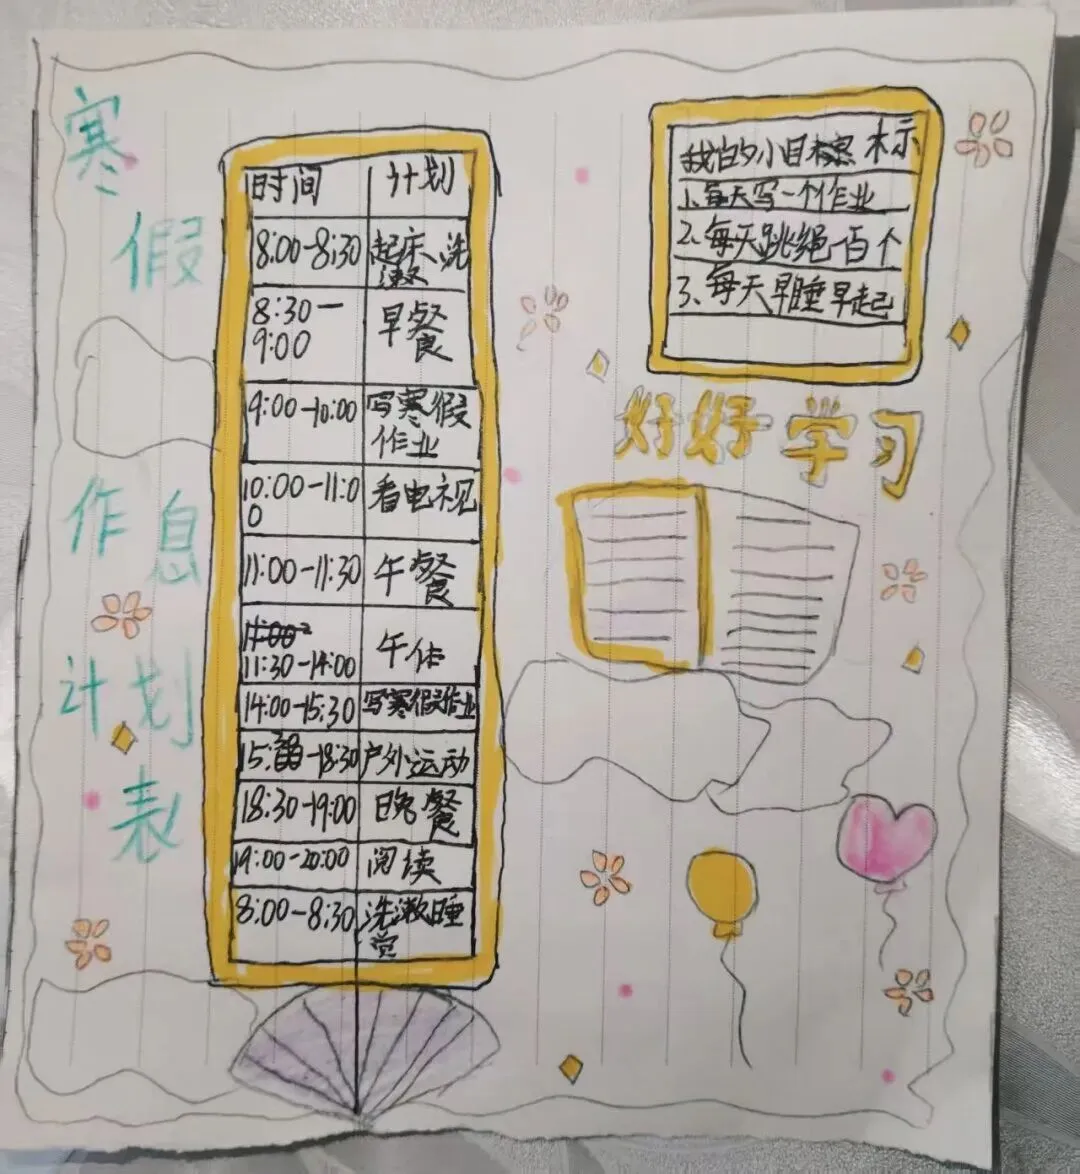 寒假
作息
计划
表
时间 计划
8:00-8:30 起床、洗漱
8:30-9:00 早餐
9:00-10:00 写寒假作业
10:00-11:00 看电视
11:00-11:30 午餐
11:30-14:00 午休
14:00-15:30 写寒假作业
15:30-18:30 户外运动
18:30-19:00 晚餐
19:00-20:00 阅读
8:00-8:30 洗漱睡觉
我的小目标
1、每天写一个作业
2、每天跳绳一百个
3、每天早睡早起
好好学习